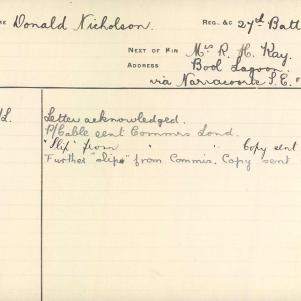 Donald Nicholson. REG. &C 27th Batt
NEXT OF KIN Mrs R. H. Kay.
ADDRESS Bool Lagoon
via Narracoorte S.E.
Letter acknowledged.
P/Cable sent Commrs Lond.
"Slip" from " " Copy sent
Further "slips" from Commis. Copy sent